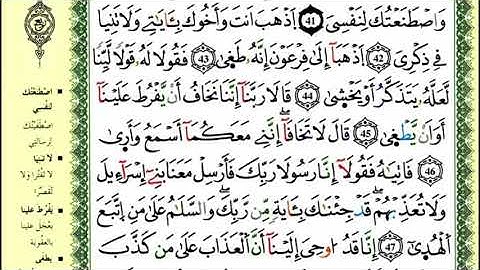 وَاصْطَنَعْتُكَ لِنَفْسِي 41 اذْهَبْ أَنتَ وَأَخُوكَ بِـَٔايَٰتِي وَلَا تَنِيَا
فِي ذِكْرِي 42 اذْهَبَا إِلَىٰ فِرْعَوْنَ إِنَّهُۥ طَغَىٰ 43 فَقُولَا لَهُۥ قَوْلًا لَّيِّنًا
لَّعَلَّهُۥ يَتَذَكَّرُ أَوْ يَخْشَىٰ 44 قَالَا رَبَّنَآ إِنَّنَا نَخَافُ أَن يَفْرُطَ عَلَيْنَآ
أَوْ أَن يَطْغَىٰ 45 قَالَ لَا تَخَافَآ إِنَّنِي مَعَكُمَآ أَسْمَعُ وَأَرَىٰ
46 فَأْتِيَاهُ فَقُولَآ إِنَّا رَسُولَا رَبِّكَ فَأَرْسِلْ مَعَنَا بَنِيٓ إِسْرَٰٓءِيلَ
وَلَا تُعَذِّبْهُمْ قَدْ جِئْنَٰكَ بِـَٔايَةٍ مِّن رَّبِّكَ وَالسَّلَٰمُ عَلَىٰ مَنِ اتَّبَعَ
الْهُدَىٰٓ 47 إِنَّا قَدْ أُوحِيَ إِلَيْنَآ أَنَّ الْعَذَابَ عَلَىٰ مَن كَذَّبَ
اصْطَنَعْتُكَ
لِنَفْسِي
اصْطَفَيْتُكَ
لِرِسَالَتِي
لَا تَنِيَا
لَا تَفْتُرَا وَلَا
تُقَصِّرَا
يَفْرُطَ عَلَيْنَا
يَعْجَلَ عَلَيْنَا
بِالْعُقُوبَةِ
يَطْغَى